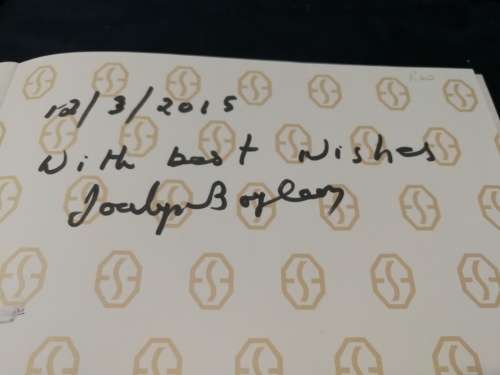 12/3/2015
With best wishes
Jocelyn Boylen